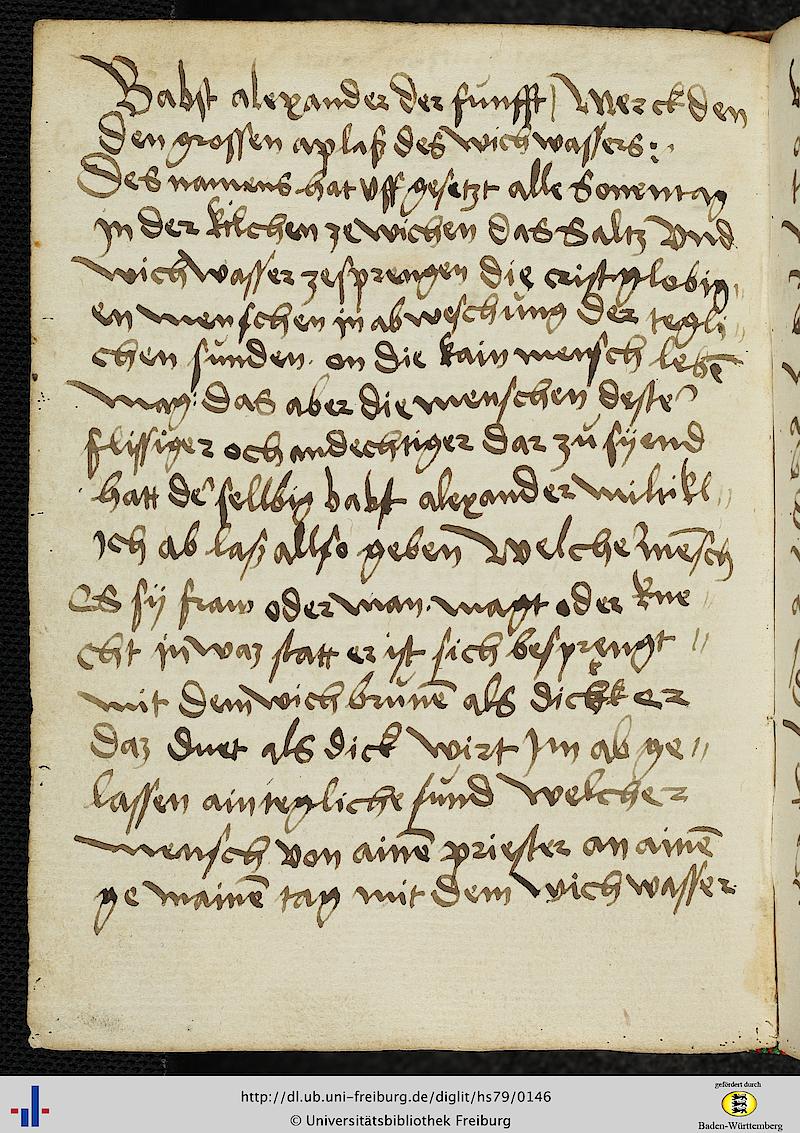 Babst alexander der funfft) Merck den
den grossen aplaß des wichwassers:.
Des namens hat uff gesetzt alle Sonentag
jn der kilchen ze wichen das Saltz Vnd
wichwasser zesprengen die cristglobig„
en menschen in abweschung der tegli„
chen sunden. on die kain mensch lebē
mag. das aber die menschen deste
flissiger och andechtiger dar zů syend
hatt de' sellbig babst alexander miltikl„
ich ab laß allso geben Welche' mēsch
Es sy fraw oder man. magt oder kne„
cht jn waz statt er ist sich besprengt „
mit dem wichbrunē als dick er
daz duet als dick wirt Jm ab ge„
lassen ain tegliche sund welcher
mensch von ainē priester an ainē
ge mainē tag mit dem wichwasser
http://dl.ub.uni-freiburg.de/diglit/hs79/0146
© Universitätsbibliothek Freiburg
gefördert durch
Baden-Württemberg